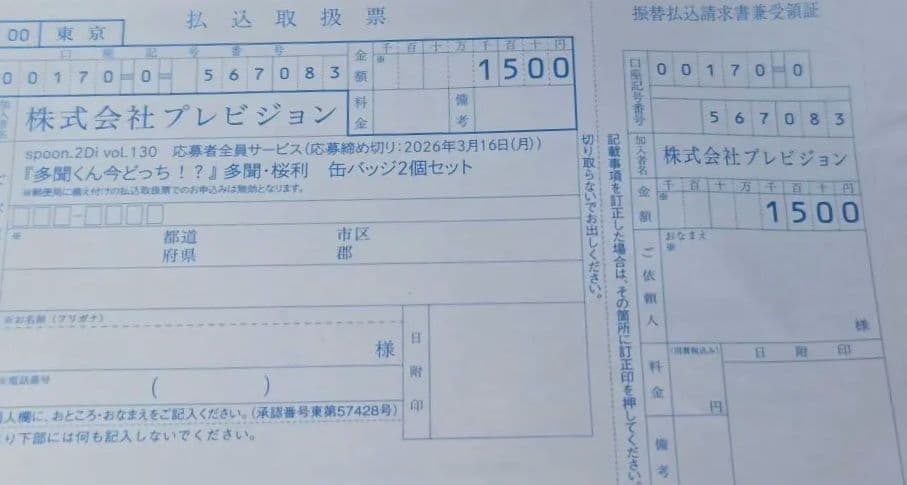 00 東京
払込取扱票
口座記号番号
00170=0= 567083
金額
千百十万千百十円
※ 1500
加入者名
株式会社プレビジョン
料金
備考
spoon.2Di voL.130 応募者全員サービス(応募締め切り:2026年3月16日(月))
『多聞くん今どっち!?』多聞・桜利 缶バッジ2個セット
※郵便局に備え付けの払込取扱票でのお申込みは無効となります。
※
都道府県
市区郡
※お名前(フリガナ)
様
※電話番号
( )
日附印
人欄に、おところ・おなまえをご記入ください。(承認番号東第57428号)
り下部には何も記入しないでください。
切り取らないでお出しください。
記載事項を訂正した場合は、その箇所に訂正印を押してください。
振替払込請求書兼受領証
口座記号番号
00170=0
567083
加入者名
株式会社プレビジョン
金額
千百十万千百十円
※ 1500
ご依頼人
おなまえ
※
様
料金
(消費税込み)
円
日附印
備考